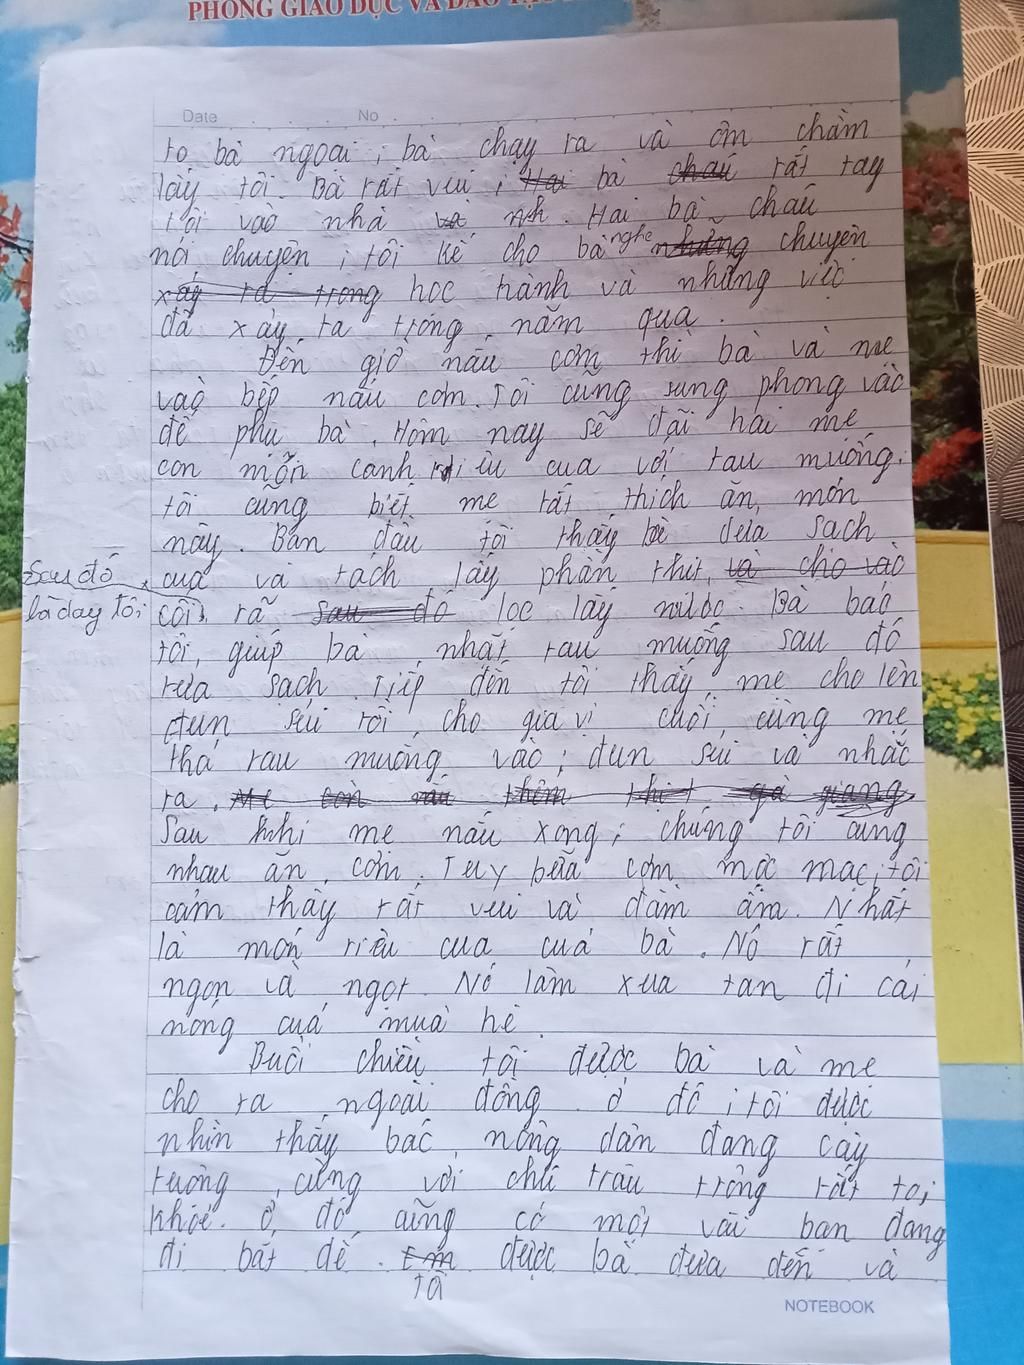 PHÒNG GIÁO DỤC VÀ ĐÀO TẠO
Date No
to bà ngoại, bà chạy ra và ôm chầm
lấy tôi. Bà rất vui, Hai bà cháu rất tay
tôi vào nhà và nh. Hai bà cháu
nói chuyện, tôi kể cho bà nghe những chuyện
xảy ra trong học hành và những việc
đã xảy ra trong năm qua.
Đến giờ nấu cơm thì bà và mẹ
vào bếp nấu cơm. Tôi cũng sung phong vào
để phụ bà. Hôm nay sẽ đãi hai mẹ
con món canh riêu cua với rau muống.
tôi cũng biết mẹ rất thích ăn món
này. Ban đầu tôi thấy bà dưa sạch
cua và tách lấy phần thịt, và cho vào
Sau đó
bà day tôi
cối rã sau đó lọc lấy nước. Bà bảo
tôi, giúp bà nhặt rau muống sau đó
rửa sạch. Tiếp đến tôi thấy mẹ cho lên
đun sui rồi cho gia vị cuối cùng mẹ
thả rau muống vào, đun sui và nhắc
ra. Mẹ còn nấu thêm thịt gà giang
Sau khi mẹ nấu xong, chúng tôi cùng
nhau ăn cơm. Tuy bữa cơm mộc mạc, tôi
cảm thấy rất vui và đầm ấm. Nhất
là món riêu cua của bà. Nó rất
ngon và ngọt. Nó làm xua tan đi cái
nóng của mùa hè.
Buổi chiều tôi được bà và mẹ
cho ra ngoài đồng. ở đó, tôi được
nhìn thấy bác nông dân đang cày
ruộng, cùng với chú trâu trông rất to,
khỏe. ở đó cũng có một vài bạn đang
đi bắt dế. Em được bà đưa đến và
tô
NOTEBOOK